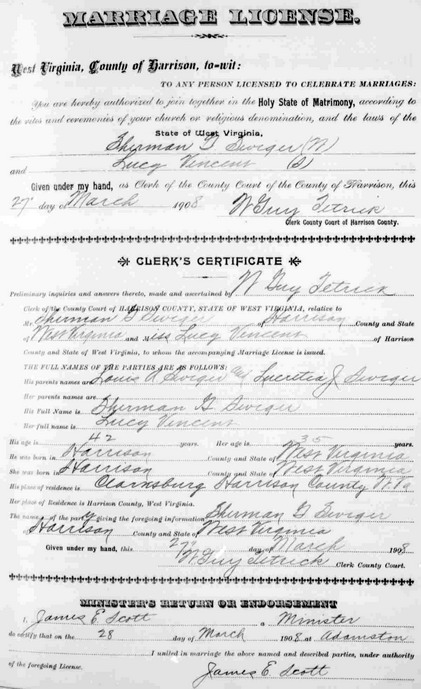 MARRIAGE LICENSE.
West Virginia, County of Harrison, to-wit:
TO ANY PERSON LICENSED TO CELEBRATE MARRIAGES:
You are hereby authorized to join together in the Holy State of Matrimony, according to
the rites and ceremonies of your church or religious denomination, and the laws of the
State of West Virginia,
Sherman G Swiger (W)
and Lucy Vincent (S)
Given under my hand, as Clerk of the County Court of the County of Harrison, this
27 day of March 1908 W Guy Tetrick
Clerk County Court of Harrison County.
CLERK'S CERTIFICATE
Preliminary inquiries and answers thereto, made and ascertained by W Guy Tetrick
Clerk of the County Court of HARRISON COUNTY, STATE OF WEST VIRGINIA, relative to
Mr Sherman G Swiger of Harrison County and State
of West Virginia and Miss Lucy Vincent of Harrison
County and State of West Virginia, to whom the accompanying Marriage License is issued.
THE FULL NAMES OF THE PARTIES ARE AS FOLLOWS:
His parents names are Louis A Swiger and Lucretia J Swiger
Her parents names are
His Full Name is Sherman G. Swiger
Her full name is Lucy Vincent
His age is 42 years. Her age is 35 years.
He was born in Harrison County and State of West Virginia
She was born in Harrison County and State of West Virginia
His place of residence is Clarksburg Harrison County W. Va
Her place of Residence is Harrison County, West Virginia.
The name of the party giving the foregoing information Sherman G Swiger
of Harrison County and State of West Virginia
Given under my hand, this 27 day of March 1908
W Guy Tetrick Clerk County Court.
MINISTER'S RETURN OR ENDORSEMENT
I, James E Scott a Minister
do notify that on the 28 day of March 1908 at Adamston
I united in marriage the above named and described parties, under authority
of the foregoing License.
James E. Scott